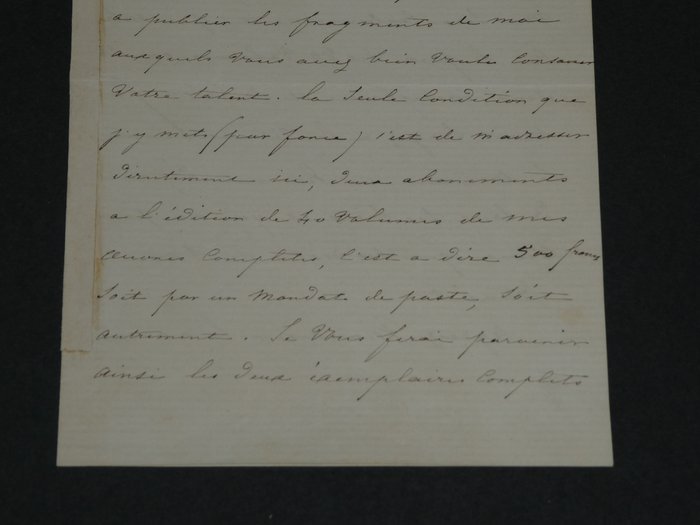 a publier les fragments de moi
auxquels Vous avez bien Voulu Consacrer
Votre talent. la Seule Condition que
j'y mets (par force) c'est de m'adresser
directement ici, deux abonements
a l'édition de 40 Volumes de mes
œuvres Complètes, C'est a dire 500 francs
Soit par un Mandat de poste, Soit
autrement. Je Vous ferai parvenir
ainsi les deux éxemplaires Complets